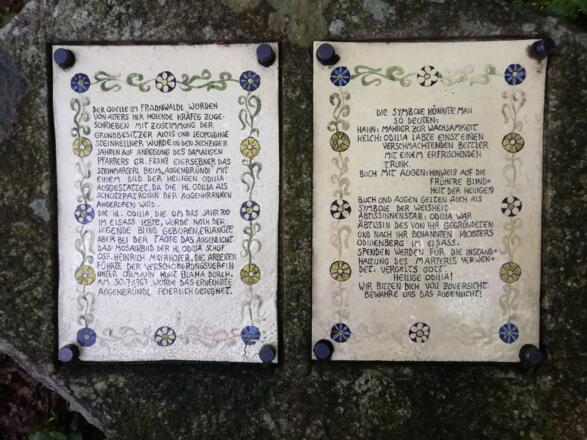 DER QUELLE IM FRAUNWALDL WURDEN
VON ALTERS HER HEILENDE KRÄFTE ZUGE-
SCHRIEBEN. MIT ZUSTIMMUNG DER
GRUNDBESITZER ALOIS UND LEOPOLDINE
STEINKELLNER WURDE IN DEN SECHZIGER
JAHREN AUF ANREGUNG DES DAMALIGEN
PFARRERS GR. FRANZ EIERSEBNER DAS
STEINMARTERL BEIM „AUGENBRÜNDL" MIT
EINEM BILD DER HEILIGEN ODILIA
AUSGESTATTET, DA DIE HL. ODILIA ALS
SCHUTZPATRONIN DER AUGENKRANKEN
ANGERUFEN WIRD.
DIE HL. ODILIA, DIE UM DAS JAHR 700
IM ELSASS LEBTE, WURDE NACH DER
LEGENDE BLIND GEBOREN, ERLANGTE
ABER BEI DER TAUFE DAS AUGENLICHT.
DAS MOSAIKBILD DER HL. ODILIA SCHUF
HEINRICH MAYRHOFER. DIE ARBEITEN
FÜHRTE DER VERSCHÖNERUNGSVEREIN
UNTER OBMANN KURT BLAHA DURCH.
AM 30.7.1967 WURDE DAS ERNEUERTE
AUGENBRÜNDL FEIERLICH GESEGNET.
DIE SYMBOLE KÖNNTE MAN
SO DEUTEN:
HAHN: MAHNER ZUR WACHSAMKEIT
KELCH: ODILIA LABTE EINST EINEN
VERSCHMACHTENDEN BETTLER
MIT EINEM ERFRISCHENDEN
TRUNK.
BUCH MIT AUGEN: HINWEIS AUF DIE
FRÜHERE BLIND-
HEIT DER HEILIGEN
BUCH UND AUGEN GELTEN AUCH ALS
SYMBOLE DER WEISHEIT.
ÄBTISSINNENSTAB: ODILIA WAR
ÄBTISSIN DES VON IHR GEGRÜNDETEN
UND NACH IHR BENANNTEN KLOSTERS
ODILIENBERG IM ELSASS.
SPENDEN WERDEN FÜR DIE INSTAND-
HALTUNG DES MARTERLS VERWEN-
DET. VERGELTS GOTT.
HEILIGE ODILIA!
WIR BITTEN DICH VOLL ZUVERSICHT
BEWAHRE UNS DAS AUGENLICHT!